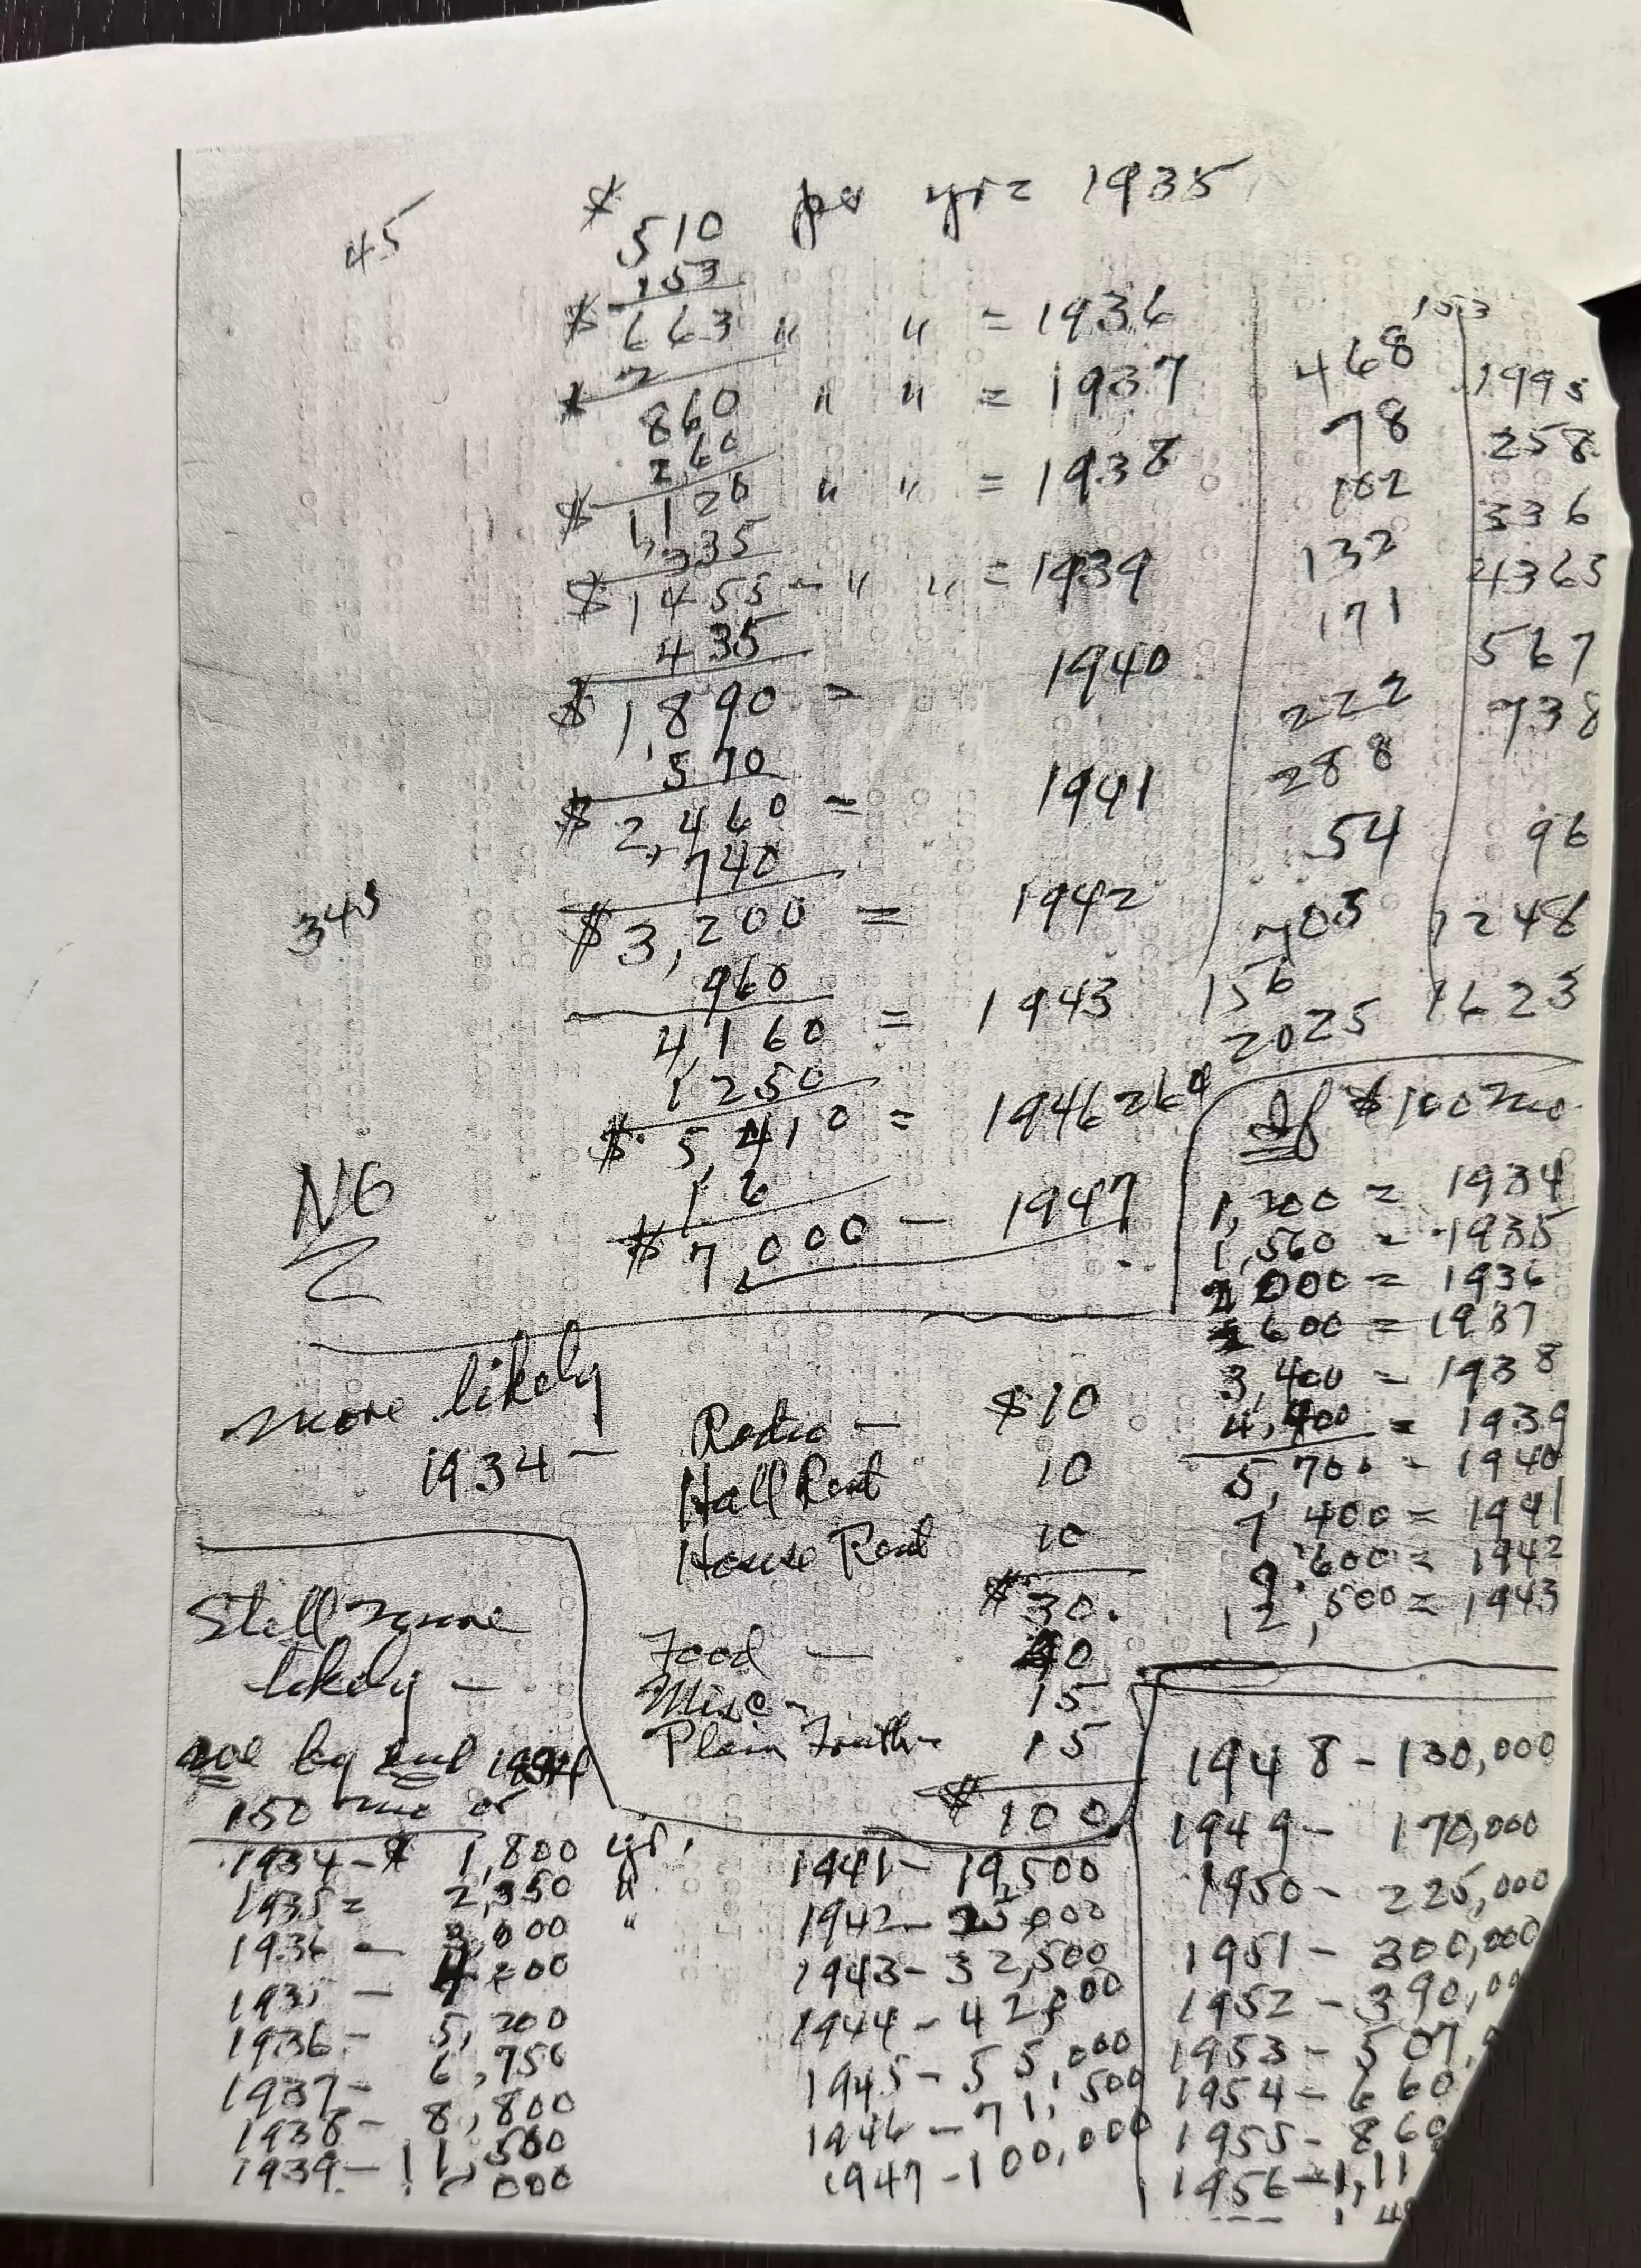 $ 510 per yr = 1935
45
153
$ 663 " " = 1936
860 " " = 1937
260
$ 1,120 " " = 1938
335
$ 1455 - " " = 1939
435
$ 1,890 = 1940
570
$ 2,460 = 1941
740
$ 3,200 = 1942
343
960
4,160 = 1943
1250
$ 5,410 = 1946
NG
1 6
$ 7,000 - 1947
153
468
78
102
132
171
222
288
54
703
156
2025
1995
258
336
4365
567
738
96
1248
1623
If $100 mo.
1,200 = 1934
1,560 = 1935
2 000 = 1936
600 = 1937
3,400 - 1938
4,400 = 1939
5,700 - 1940
7 400 = 1941
9 600 = 1942
12,500 = 1943
more likely
1934 - Radio - $10
Hall Rent 10
House Rent 10
$30.
Food - 40
Misc - 15
Plain Truth - 15
$100
Still more
likely -
by end 1934
150 mo or
1934 - $ 1,800 yr.
1935 = 2,350 "
1936 - 3,000 "
1935 -
1936 - 5,200
1937 - 6,750
1938 - 8,800
1939 - 11,500
000
1941 - 19,500
1942 - 25,000
1943 - 32,500
1944 - 42,500
1945 - 55,000
1946 - 71,500
1947 - 100,000
1948 - 130,000
1949 - 170,000
1950 - 225,000
1951 - 300,000
1952 - 390,00
1953 - 507,
1954 - 660
1955 - 860
1956 - 1,11